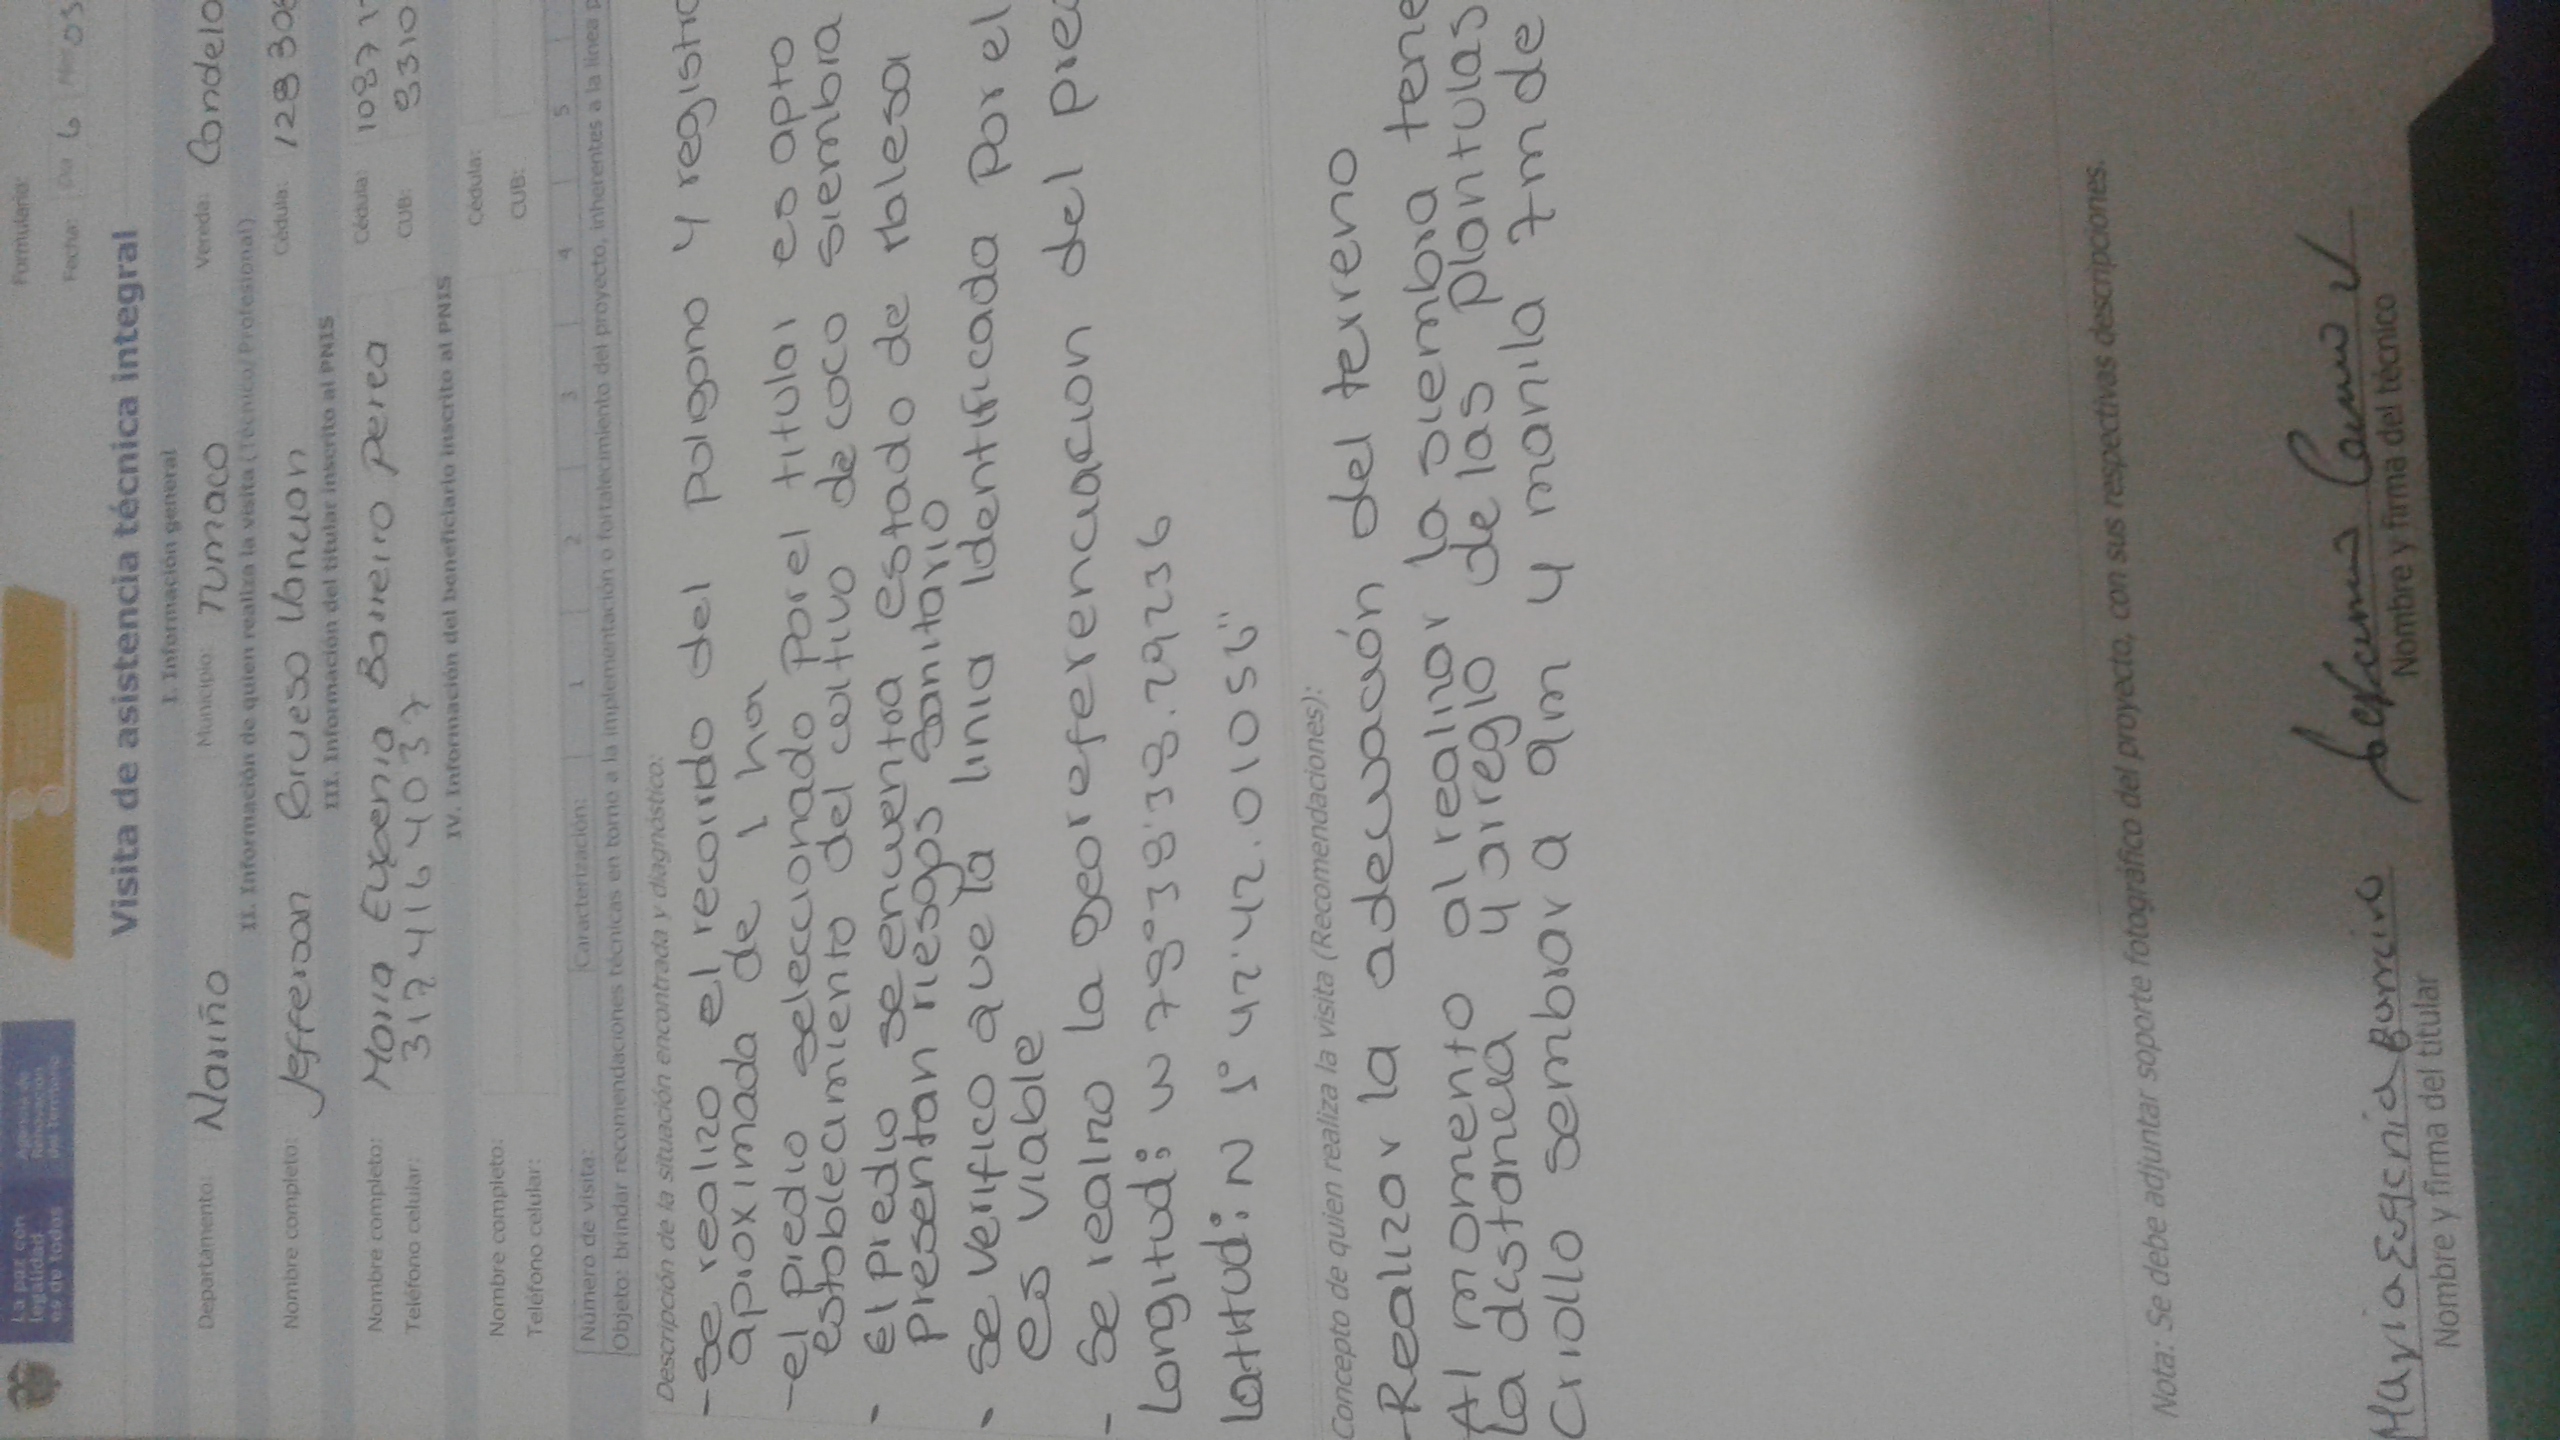 La paz con
legalidad
es de todos
Agencia de
Renovación
del Territorio
Formulario:
Fecha: Día 6 Mes 03
Visita de asistencia técnica integral
I. Información general
Departamento: Nariño Municipio: Tumaco Vereda: Candelo
II. Información de quien realiza la visita (Técnico/Profesional)
Nombre completo: Jefferson Cédula: 128306
III. Información del titular inscrito al PNIS
Nombre completo: Maria Eugenia Barreiro Perea Cédula: 10871
Teléfono celular: 3174164037 CUB: 9310
IV. Información del beneficiario inscrito al PNIS
Nombre completo: Cédula:
Teléfono celular: CUB:
Número de visita: Caracterización: 1 2 3 4 5
Objeto: brindar recomendaciones técnicas en torno a la implementación o fortalecimiento del proyecto, inherentes a la línea p
Descripción de la situación encontrada y diagnóstico:
- se realizo el recorrido del poligono y registro
aproximada de 1 ha
- el predio seleccionado por el titular es apto
establecimiento del cultivo de coco siembra
- El predio se encuentra estado de
Presentan riesgos sanitario
- se verifico que la linia identificada por el
es viable
- se realizo la georeferenciacion del pre
Longitud: W 78°38'38.29236
Latitud: N 1°42'42.01056"
Concepto de quien realiza la visita (Recomendaciones):
- Realizar la adecuación del terreno
Al momento al realizar la siembra tene
la distancia y arreglo de las plantulas
Criollo sembrar a 9m y manila 7m de
Nota: Se debe adjuntar soporte fotográfico del proyecto, con sus respectivas descripciones.
Maria Eugenia Barreiro
Nombre y firma del titular Nombre y firma del técnico